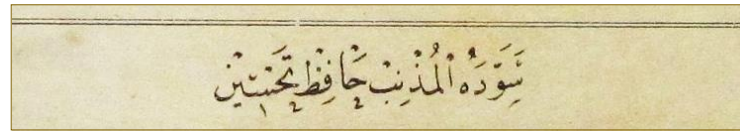 سَوَّدَهُ الْمُذْنِبْ حَافِظْ تَحْسِينْ